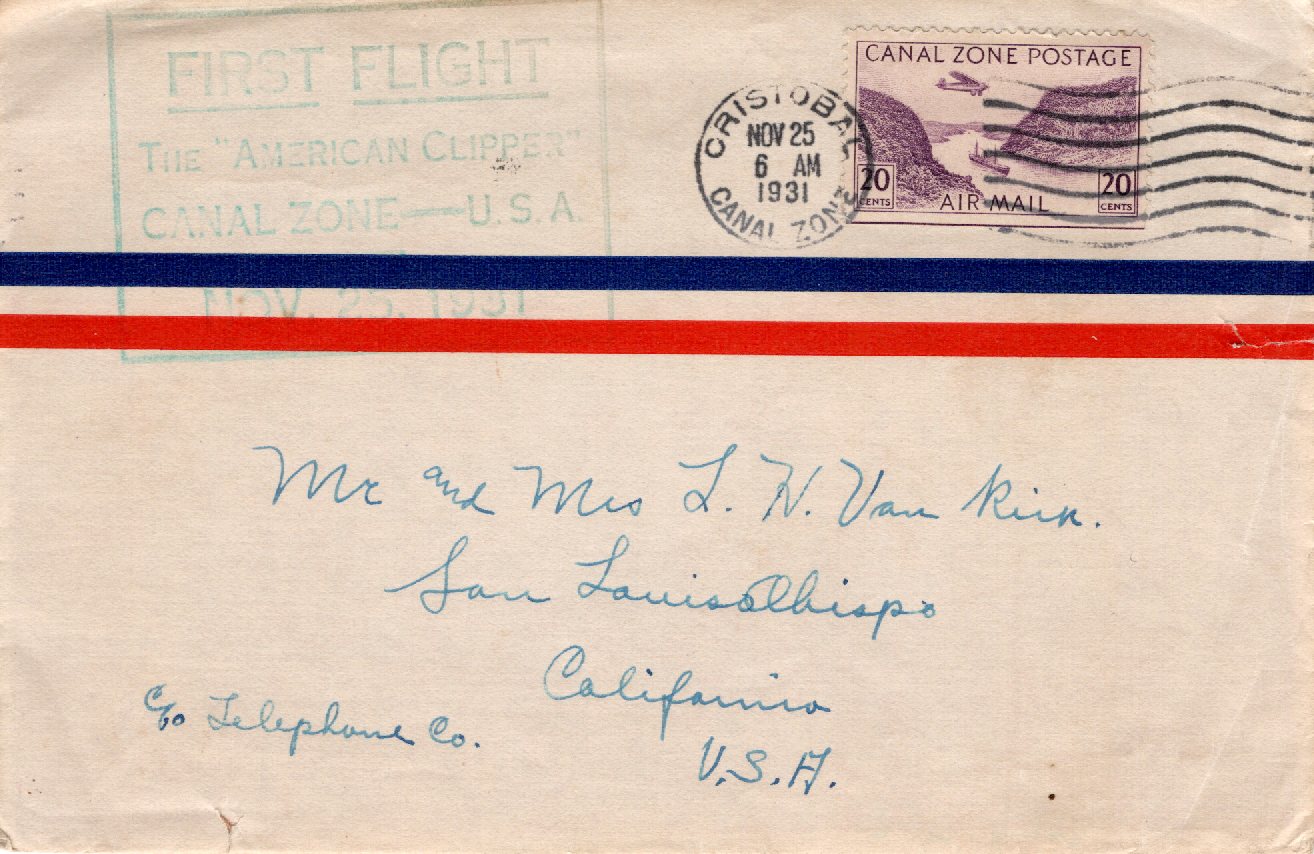 FIRST FLIGHT
THE "AMERICAN CLIPPER"
CANAL ZONE — U.S.A.
NOV. 25, 1931
CRISTOBAL
NOV 25
6 AM
1931
CANAL ZONE
CANAL ZONE POSTAGE
20 CENTS
AIR MAIL
20 CENTS
Mr and Mrs L. H. Van Kirk.
San Louis Obispo
California
U.S.A.
c/o Telephone Co.